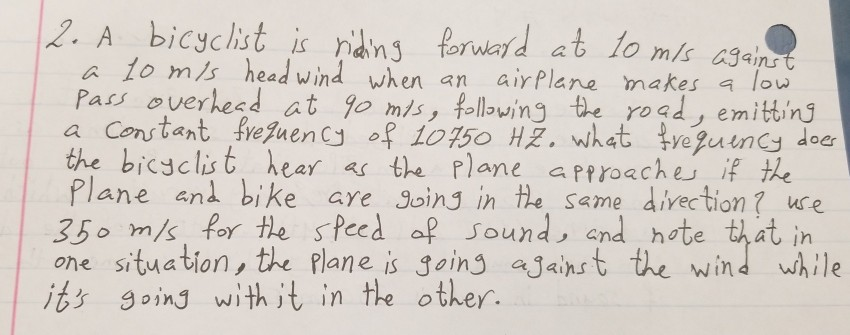 2. A bicyclist is riding forward at 10 m/s against
a 10 m/s headwind when an airplane makes a low
Pass overhead at 90 m/s, following the road, emitting
a constant frequency of 10750 HZ. what frequency does
the bicyclist hear as the plane approaches if the
Plane and bike are going in the same direction? use
350 m/s for the speed of sound, and note that in
one situation, the plane is going against the wind while
it's going with it in the other.